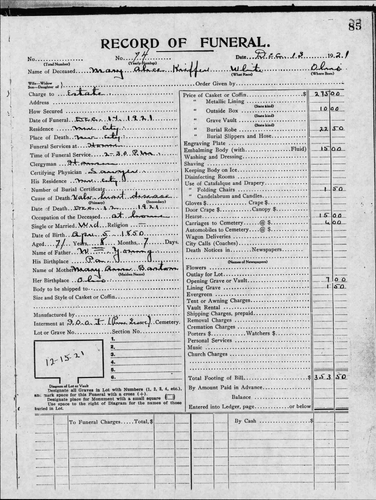 85
RECORD OF FUNERAL.
No. 74 Date Dec. 13 1921
(Total Number) (Yearly Number)
Name of Deceased Mary Alice Kniffen White Ohio
(What Race) (Where Born)
Order Given by
Charge to Estate
Address
How Secured
Date of Funeral Dec. 14, 1921
Residence
Place of Death
Funeral Services at Home
Time of Funeral Service 2-30 P.M.
Clergyman
Certifying Physician Sawyer
His Residence
Number of Burial Certificate
Cause of Death Valv. heart disease
(Primary) (Secondary)
Date of Death Dec. 1921
Occupation of the Deceased at home
Single or Married Wid. Religion
Date of Birth Apr. 5, 1850
Aged 71 Years 8 Months 7 Days
Name of Father Wm Young
His Birthplace Pa.
Name of Mother Mary Ann Bartom
(Maiden Name)
Her Birthplace Ohio
Body to be shipped to
Size and Style of Casket or Coffin
Manufactured by
Interment at I.O.O.F. Cemetery.
Lot or Grave No. Section No.
1.
2.
3.
4.
5.
6.
7.
8.
12-15-21
Diagram of Lot or Vault
Designate all Graves in Lot with Numbers (1, 2, 3, 4, etc.),
mark space for this Funeral with a cross (+)
Designate place for Monument with a small square
Use space to the right of Diagram for the names of those
buried in Lot.
Price of Casket or Coffin $ 275 00
" Metallic Lining
" Outside Box 10 00
" Grave Vault
" Burial Robe 22 50
" Burial Slippers and Hose
Engraving Plate
Embalming Body (with Fluid) 15 00
Washing and Dressing
Shaving
Keeping Body on Ice
Disinfecting Rooms
Use of Catafalque and Drapery
" Folding Chairs 1 50
" Candelabrum and Candles
Gloves $ Crape $
Door Crape $ Canopy $
Hearse 15 00
Carriages to Cemetery @ $
Automobiles to Cemetery @ $
Wagon Deliveries
City Calls (Coaches)
Death Notices in Newspapers
(Names of Newspapers)
Flowers
Outlay for Lot
Opening Grave or Vault 7 00
Lining Grave 1 50
Evergreen
Tent or Awning Charges
Vault Rental
Shipping Charges, prepaid
Removal Charges
Cremation Charges
Porters $ Watchers $
Personal Services
Music
Church Charges
Total Footing of Bill $ 353 50
By Amount Paid in Advance
Balance
Entered into Ledger, page or below.
To Funeral Charges, Total $ By Cash $